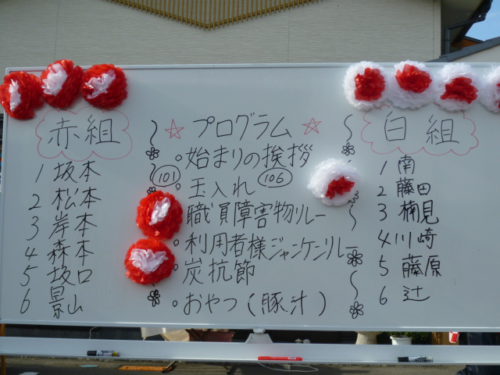 赤組
1 坂本
2 松本
3 岸本
4 森本
5 坂口
6 景山
☆プログラム☆
・始まりの挨拶
・玉入れ
101
106
・職員障害物リレー
・利用者様ジャンケンリレー
・炭抗節
・おやつ(豚汁)
白組
1 南
2 藤田
3 楠見
4 川崎
5 藤原
6 辻